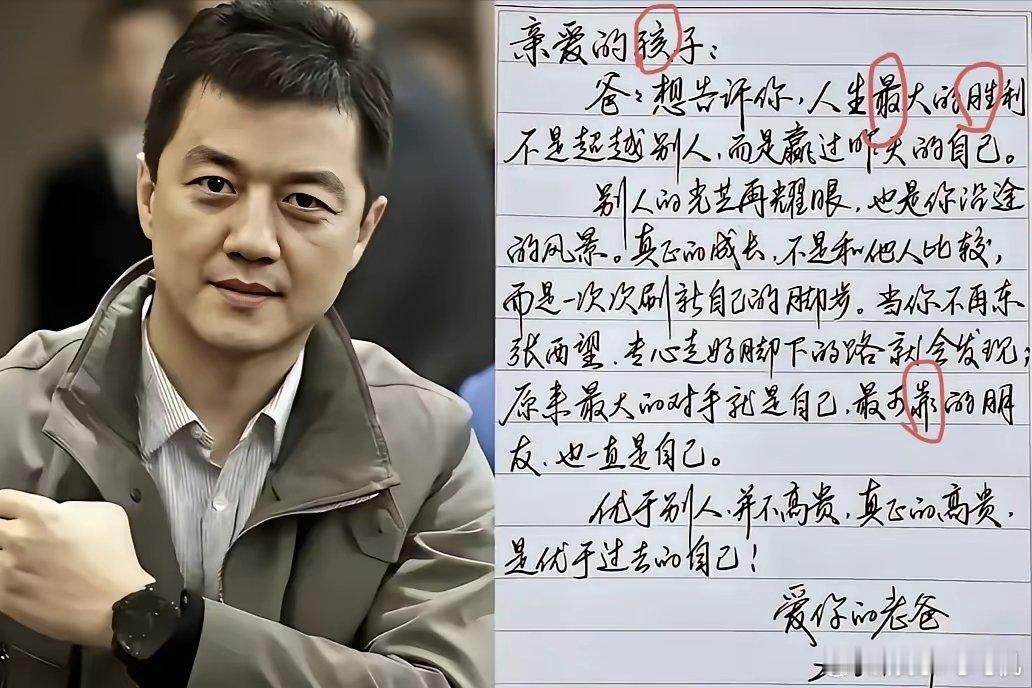 亲爱的孩子：
爸爸想告诉你，人生最大的胜利
不是超越别人，而是赢过昨天的自己。
别人的光芒再耀眼，也是你沿途
的风景。真正的成长，不是和他人比较，
而是一次次刷新自己的脚步。当你不再东
张西望、专心走好脚下的路就会发现：
原来最大的对手就是自己，最可靠的朋
友、也一直是自己。
优于别人，并不高贵，真正的高贵，
是优于过去的自己！
爱你的老爸